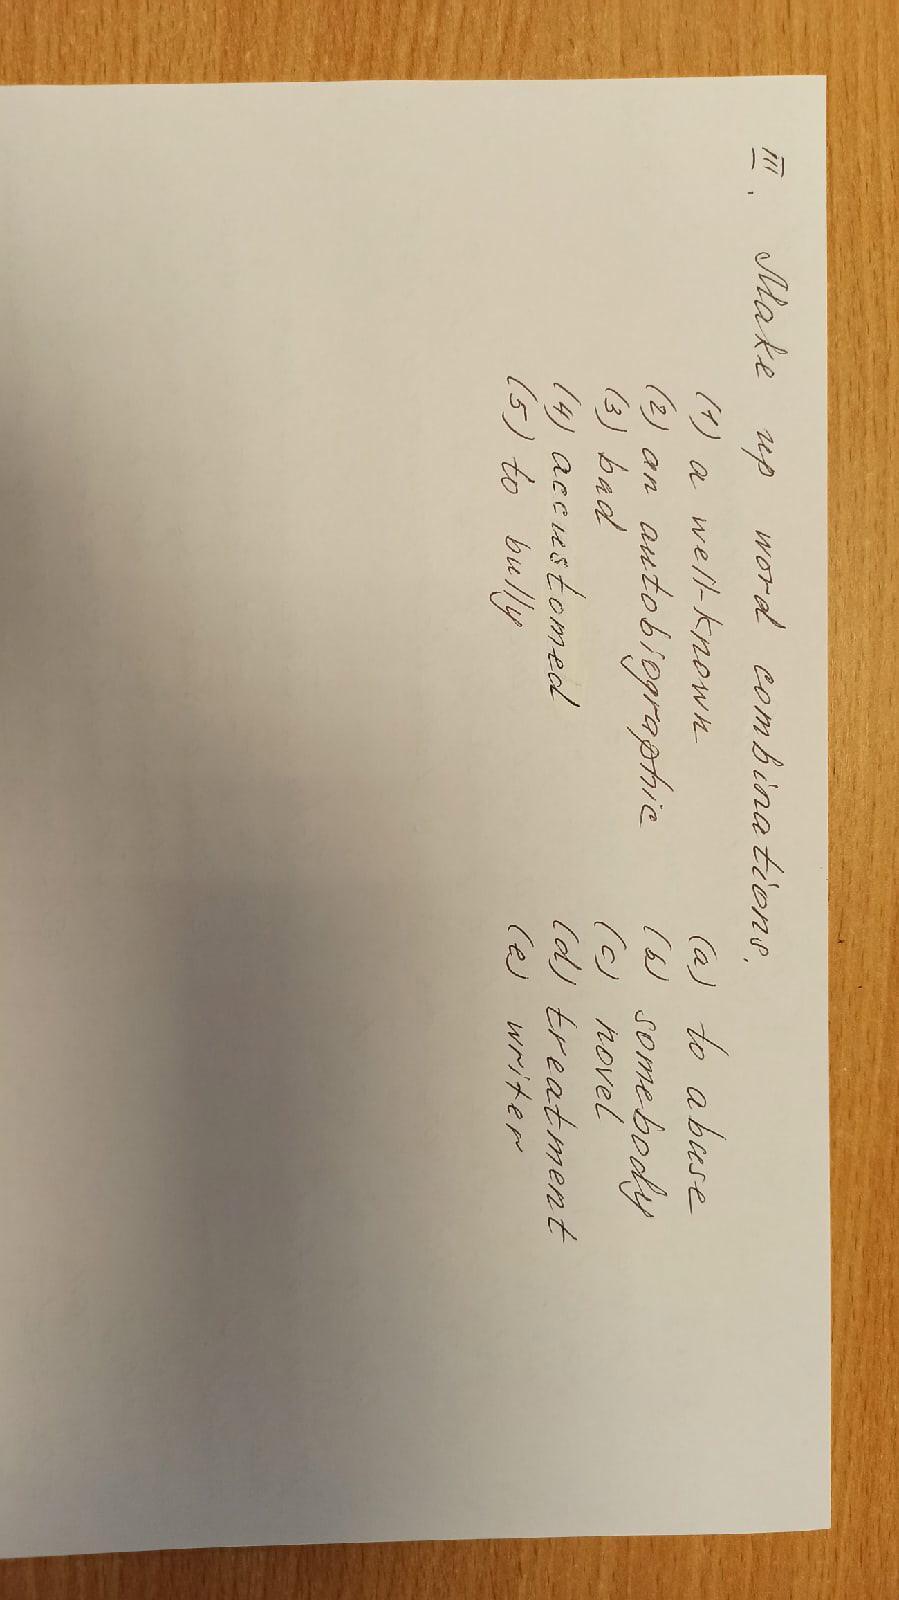 III. Make up word combinations.
(1) a well-known (a) to abuse
(2) an autobiographic (b) somebody
(3) bad (c) novel
(4) accustomed (d) treatment
(5) to bully (e) writer